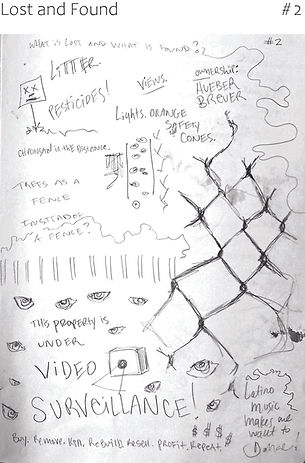 Lost and Found #2
WHAT IS LOST AND WHAT IS FOUND?
#2
LITTER.
PESTICIDES!
VIEWS.
OWNERSHIP:
HUEBER
BREUER
Lights. ORANGE
SAFETY
CONES.
IN THE DISTANCE.
TREES AS A
FENCE
A FENCE?
THIS PROPERTY IS
UNDER
VIDEO
SURVEILLANCE!
Buy. Remove. Run. Rebuild. Resell. Profit. Repeat.
$ $ $ $
Latino
music
makes me
want to
Dance!